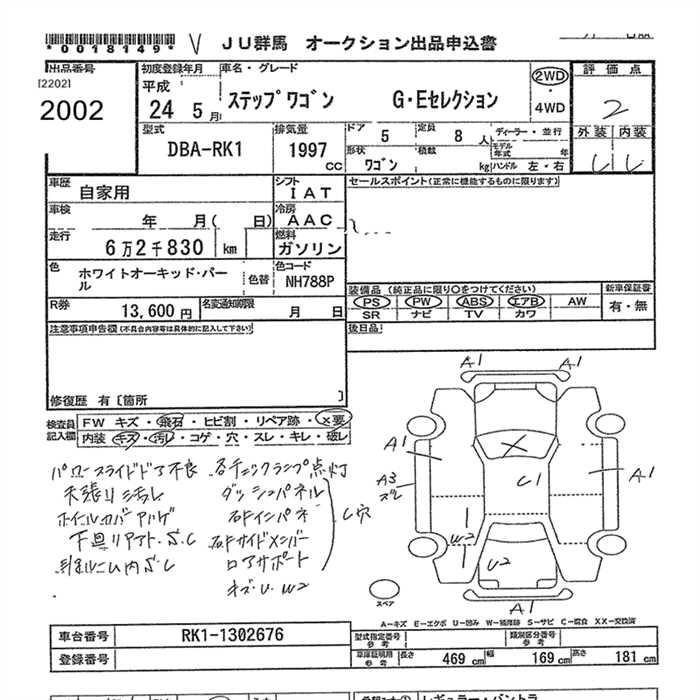 *0018149* V JU群馬 オークション出品申込書
出品番号 初度登録年月 車名・グレード 2WD・4WD 評価点
[2202] 平成
2002 24 5月 ステップワゴン G・Eセレクション 2
外装 内装
型式 排気量 ドア 5 定員 8人 ディーラー・並行
DBA-RK1 1997cc 形状 ワゴン 積載 kg モデル年式 年 ハンドル 左・右
車歴 自家用 シフト IAT セールスポイント(正常に機能するものに限ります)
車検 年 月( 日) 冷房 AAC
走行 6万2千830km 燃料 ガソリン
色 ホワイトオーキッド・パール 色替 色コード NH788P
装備品(純正品に限り○をつけてください) 新車保証書
PS PW ABS エアB AW 有・無
SR ナビ TV カワ
R券 13,600円 名変通知期限 月 日
後日品
注意事項申告欄(不具合内容等は具体的に記入して下さい)
修復歴 有〔箇所 〕
検査員記入欄 FW キズ・飛石・ヒビ割・リペア跡・×要
内装 キズ・汚レ・コゲ・穴・スレ・キレ・破レ
パワースライドドア不良 各チェックランプ点灯
天張り汚れ ダッシュパネル
ホイールカバーハゲ
下廻リアフト S.C
ロアサポート
キズ U W2
穴
A1 A1
A1 A1
A3
X
U1
W2
U2
A1
スペア
A-キズ E-エクボ U-凹み W-補修跡 S-サビ C-腐食 XX-交換済
車台番号 RK1-1302676 型式指定番号 参考 類別区分番号 参考
登録番号 車庫証明用 参考 長さ 469cm 幅 169cm 高さ 181cm
レギュラー・バントラ